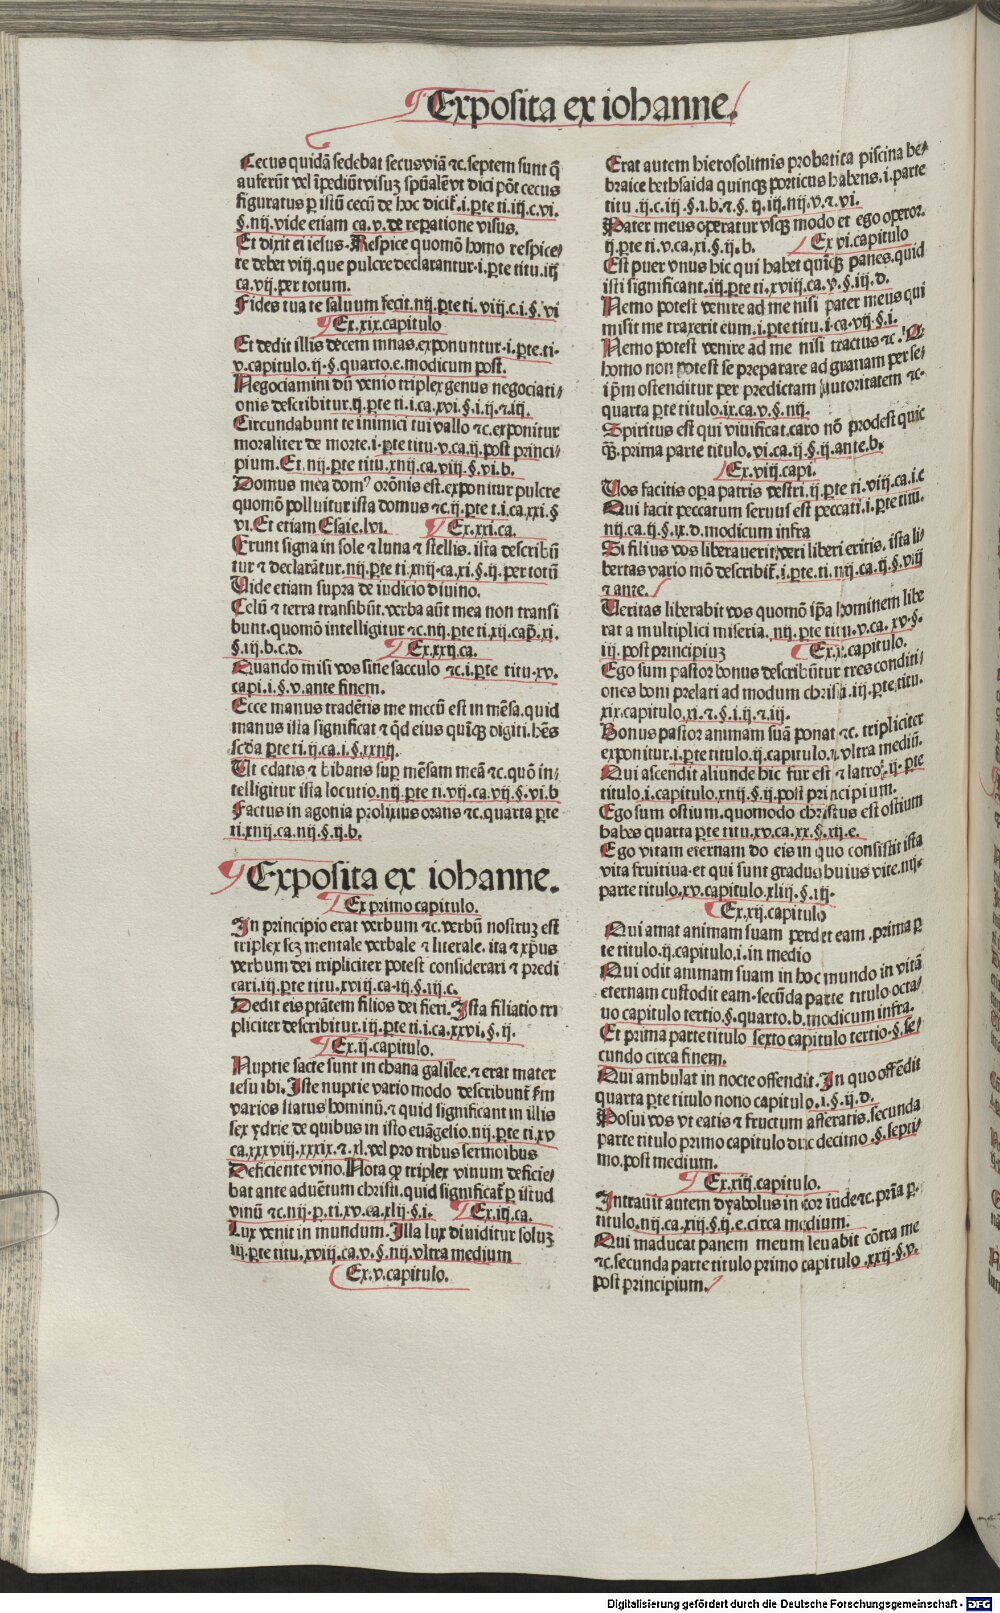 Exposita ex iohanne.
Cecus quidā sedebat secus viā ⁊c. septem sunt q̄
auferūt vel īpediūt visuꝫ spūalē vt dici pōt cecus
figuratus ꝑ istū cecū de hoc dicit̄. i. ꝑte ti. iij. c. vi.
§. nij. vide etiam ca. v. de reꝑatione visus.
Et dixit ei iesus. Respice quomō homo respice⸗
re debet viij. que pulcre declarantur. i. ꝑte titu. iij
ca. vij. per totum.
Fides tua te saluum fecit. nij. ꝑte ti. viij. c. i. §. vi
Ex. xix. capitulo
Et dedit illis decem mnas. exponuntur. i. ꝑte. ti.
v. capitulo. ij. §. quarto. e. modicum post.
Negociamini dū venio triplex genus negociati⸗
onis describitur. ij. ꝑte ti. i. ca. xvi. §. i. ij. ⁊ iij.
Circundabunt te inimici tui vallo ⁊c. exponitur
moraliter de morte. i. ꝑte titu. v. ca. ij. post princi⸗
pium. Et. nij. ꝑte titu. xnij. ca. viij. §. vi. b.
Domus mea domꝰ orōnis est. exponitur pulcre
quomō polluitur ista domus ⁊c. ij. ꝑte t. i. ca. xxi. §
vi. Et etiam Esaie. lvi.
Ex. xxi. ca.
Erunt signa in sole ⁊ luna ⁊ stellis. ista describū
tur ⁊ declarātur. nij. ꝑte ti. xnij. ca. xi. §. ij. per totū
Vide etiam supra de iudicio diuino.
Celū ⁊ terra transibūt. verba aūt mea non transi
bunt. quomō intelligitur ⁊c. nij. ꝑte ti. xij. cap̄. xi.
§. iij. b. c. d.
Ex. xxij. ca.
Quando misi vos sine sacculo ⁊c. i. ꝑte titu. xv.
capi. i. §. v. ante finem.
Ecce manus tradētis me mecū est in mēsa. quid
manus ista significat ⁊ q̄d eius quīqꝫ digiti. hēs
scd̄a ꝑte ti. ij. ca. i. §. xxnij.
Ut edatis ⁊ bibatis suꝑ mēsam meā ⁊c. quō in⸗
telligitur ista locutio. nij. ꝑte ti. vij. ca. vij. §. vi. b
Factus in agonia prolixius orans ⁊c. quarta ꝑte
ti. xnij. ca. nij. §. ij. b.
Exposita ex iohanne.
Ex primo capitulo.
In principio erat verbum ⁊c. verbū nostruꝫ est
triplex scꝫ mentale verbale ⁊ literale. ita ⁊ xp̄us
verbum dei tripliciter potest considerari ⁊ predi
cari. iij. ꝑte titu. xviij. ca. iij. §. iij. c.
Dedit eis ptātem filios dei fieri. Ista filiatio tri
pliciter describitur. iij. ꝑte ti. i. ca. xxvi. §. ij.
Ex. ij. capitulo.
Nuptie facte sunt in chana galilee. ⁊ erat mater
iesu ibi. Iste nuptie vario modo describunt̄ fm
varios status hominū. ⁊ quid significant in illis
sex ydrie de quibus in isto euāgelio. nij. ꝑte ti. xv
ca. xxxviij. xxxix. ⁊. xl. vel pro tribus sermoibus
Deficiente vino. Nota ꝙ triplex vinum deficie⸗
bat ante aduētum christi. quid significat̄ ꝑ istud
vinū ⁊c. nij. ꝑ. ti. xv. ca. xlij. §. i.
Ex. iij. ca.
Lux venit in mundum. Illa lux diuiditur soluꝫ
iij. ꝑte titu. xviij. ca. v. §. nij. vltra medium
Ex. v. capitulo.
Erat autem hierosolimis probatica piscina he⸗
braice bethsaida quinqꝫ porticus habens. i. parte
titu. ij. c. iij. §. i. b. ⁊. §. ij. iij. nij. v. ⁊. vi.
Pater meus operatur vsqꝫ modo et ego operor.
ij. ꝑte ti. v. ca. xi. §. ij. b.
Ex vi. capitulo
Est puer vnus hic qui habet quīqꝫ panes. quid
isti significant. iij. ꝑte ti. xviij. ca. v. §. iij. d.
Nemo potest venire ad me nisi pater meus qui
misit me traxerit eum. i. ꝑte titu. i. ca. vij. §. i.
Nemo potest venire ad me nisi tractus ⁊c. Q
homo non potest se preparare ad gratiam per se⸗
ip̄m ostenditur per predictam autoritatem ⁊c.
quarta ꝑte titulo. ix. ca. v. §. nij.
Spiritus est qui viuificat. caro nō prodest quic
qꝫ. prima parte titulo. vi. ca. ij. §. ij. ante. b.
Ex. viij. capi.
Vos facitis oꝑa patris vestri. ij. ꝑte ti. viij. ca. i. c
Qui facit peccatum seruus est peccati. i. ꝑte titu.
nij. ca. ij. §. ix. d. modicum infra
Si filius vos liberauerit. veri liberi eritis. ista li⸗
bertas vario mō describit̄. i. ꝑte. ti. nij. ca. ij. §. vij
⁊ ante.
Veritas liberabit vos quomō ip̄a hominem libe
rat a multiplici miseria. nij. ꝑte titu. v. ca. xv. §.
iij. post principiuꝫ
Ex. x. capitulo.
Ego sum pastor bonus describūtur tres conditi⸗
ones boni prelati ad modum christi. iij. ꝑte. titu.
xix. capitulo. xi. ⁊. §. i. ij. ⁊. iij.
Bonus pastor animam suā ponat ⁊c. tripliciter
exponitur. i. ꝑte titulo. ij. capitulo. i. vltra mediū.
Qui ascendit aliunde hic fur est ⁊ latro. ij. ꝑte
titulo. i. capitulo. xnij. §. ij. post principium.
Ego sum ostium. quomodo christus est ostium
habes quarta ꝑte titu. xv. ca. xx. §. xij. e.
Ego vitam eternam do eis in quo consistit ista
vita fruitiua. et qui sunt gradus huius vite. nij.
parte titulo. xv. capitulo. xliij. §. iij.
Ex. xij. capitulo
Qui amat animam suam perdet eam. prima ꝑ
te titulo. ij. capitulo. i. in medio
Qui odit animam suam in hoc mundo in vitā
eternam custodit eam. secūda parte titulo octa⸗
uo capitulo tertio. §. quarto. b. modicum infra.
Et prima parte titulo sexto capitulo tertio. §. se⸗
cundo circa finem.
Qui ambulat in nocte offendit. In quo offēdit
quarta ꝑte titulo nono capitulo. i. §. ij. d.
Posui vos vt eatis ⁊ fructum afferatis. secunda
parte titulo primo capitulo duodecimo. §. septi⸗
mo. post medium.
Ex. xiij. capitulo.
Intrauit autem dyabolus in cor iude ⁊c. pria ꝑ.
titulo. nij. ca. xij. §. ij. e. circa medium.
Qui maducat panem meum leuabit cōtra me
⁊c. secunda parte titulo primo capitulo. xxij. §. v.
post principium.
Digitalisierung gefördert durch die Deutsche Forschungsgemeinschaft - DFG